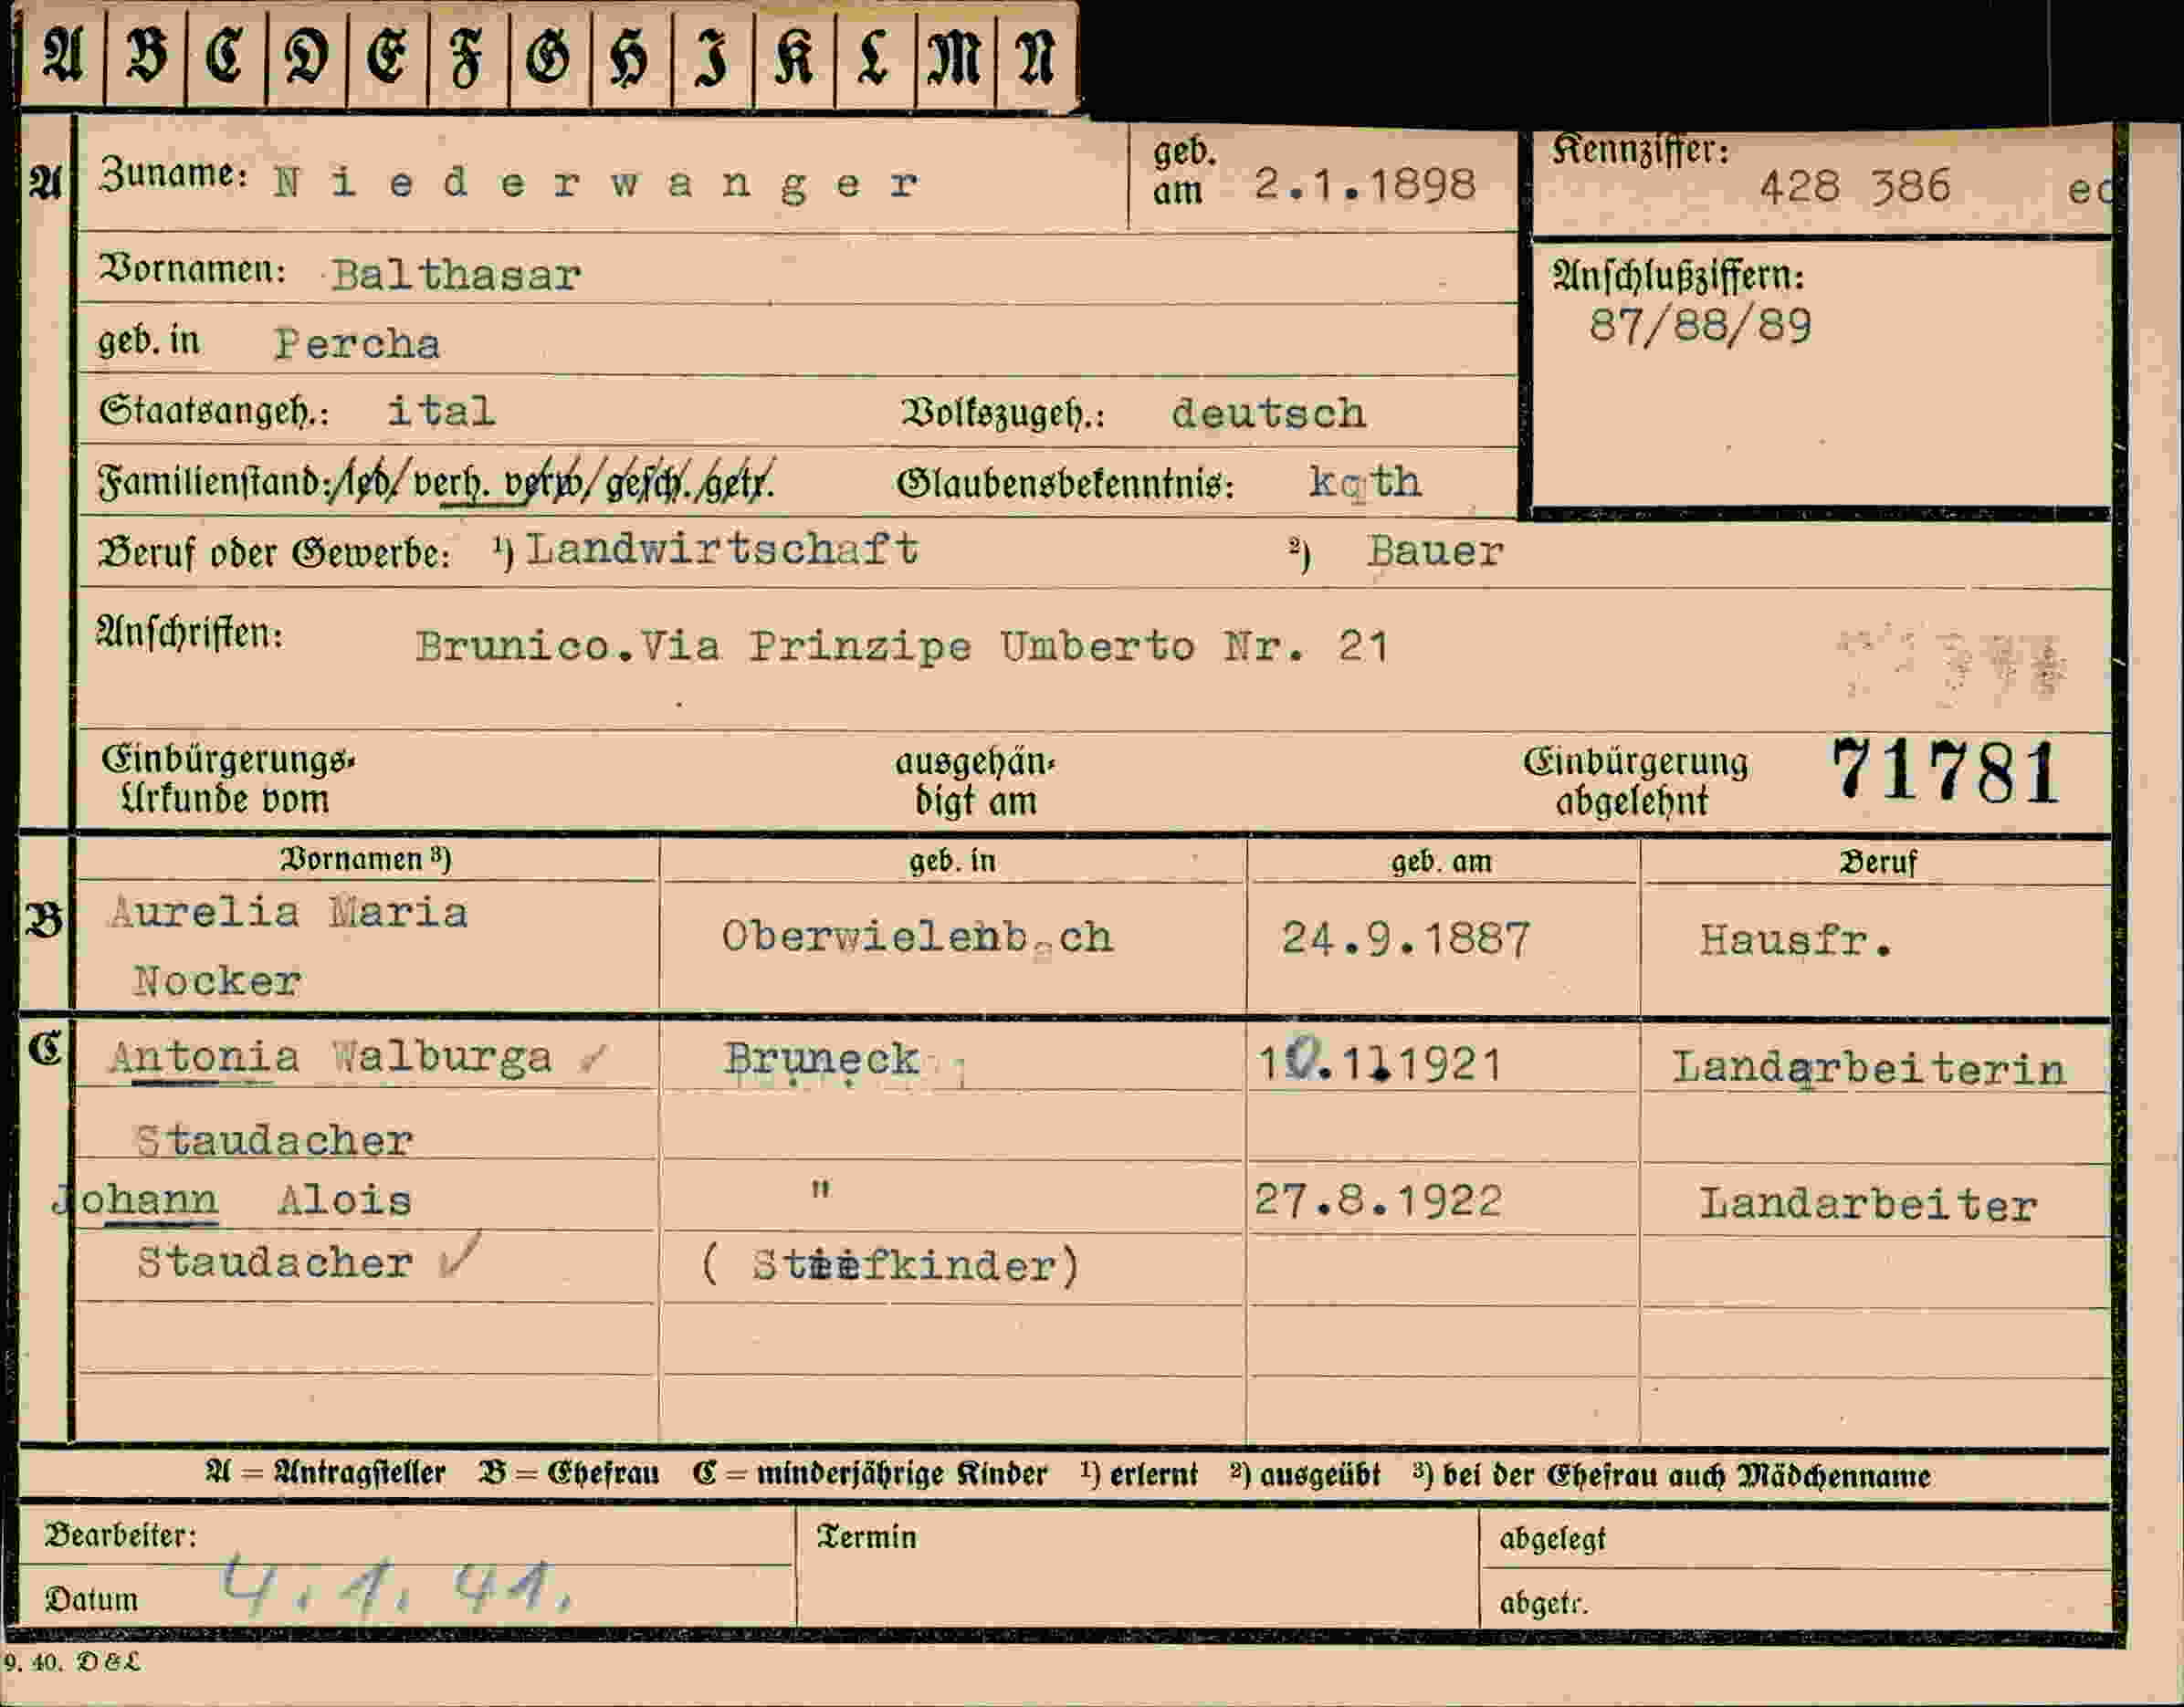 A B C D E F G H I K L M N
A Zuname: Niederwanger geb. am 2.1.1898 Kennziffer: 428 386
Vornamen: Balthasar Anschlußziffern:
87/88/89
geb. in Percha
Staatsangeh.: ital Volkszugeh.: deutsch
Familienstand: led/ verh. verw/ gesch./getr. Glaubensbekenntnis: kath
Beruf oder Gewerbe: ¹) Landwirtschaft ²) Bauer
Anschriften: Brunico.Via Prinzipe Umberto Nr. 21
Einbürgerungs- ausgehän- Einbürgerung 71781
Urkunde vom digt am abgelehnt
Vornamen ³) geb. in geb. am Beruf
B Aurelia Maria Oberwielenbach 24.9.1887 Hausfr.
Nocker
C Antonia Walburga Bruneck 10.11.1921 Landarbeiterin
Staudacher
Johann Alois " 27.8.1922 Landarbeiter
Staudacher ( Stiefkinder)
A = Antragsteller B = Ehefrau C = minderjährige Kinder ¹) erlernt ²) ausgeübt ³) bei der Ehefrau auch Mädchenname
Bearbeiter: Termin abgelegt
Datum 4.1.41. abgetr.
9. 40. D&L